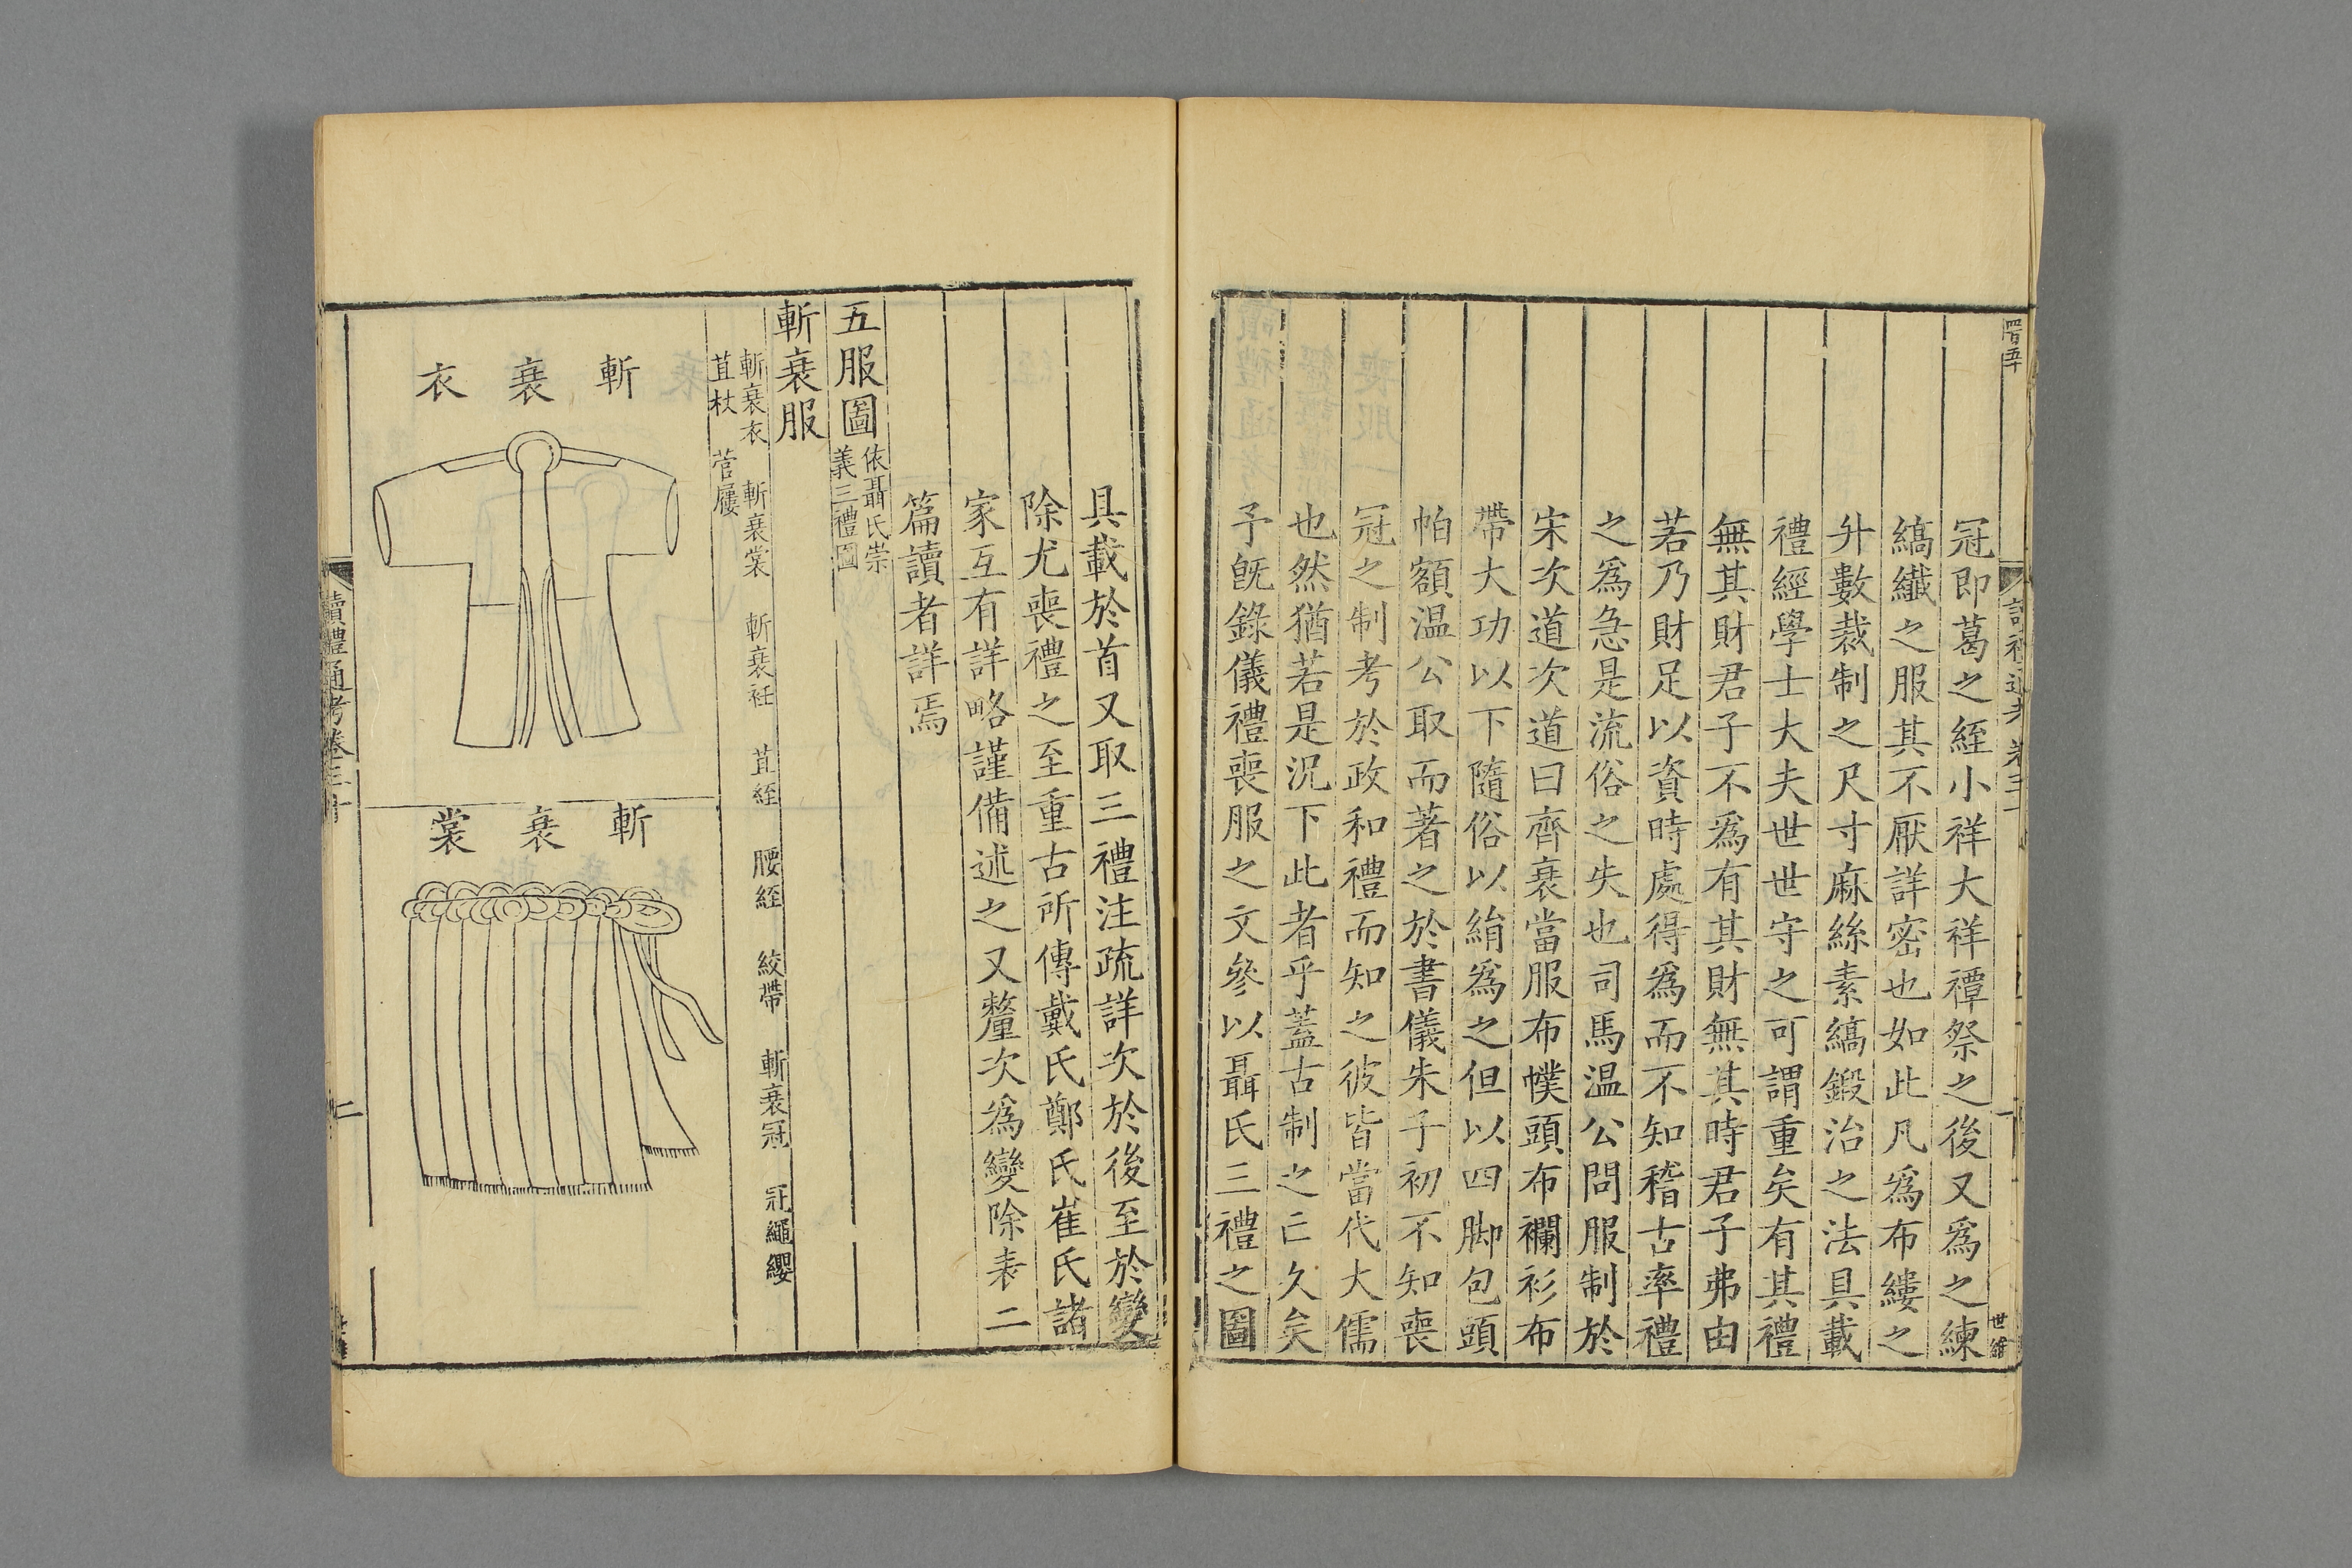 冠即葛之絰小祥大祥禫祭之後又爲之練
縞纖之服其不厭詳密也如此凡爲布縷之
升數裁制之尺寸麻絲素縞鍛治之法具載
禮經學士大夫世世守之可謂重矣有其禮
無其財君子不爲有其財無其時君子弗由
若乃財足以資時處得爲而不知稽古率禮
之爲急是流俗之失也司馬温公問服制於
宋次道次道曰齊衰當服布幞頭布襴衫布
帶大功以下隨俗以絹爲之但以四脚包頭
帕額温公取而著之於書儀朱子初不知喪
冠之制考於政和禮而知之彼皆當代大儒
也然猶若是況下此者乎蓋古制之亡久矣
予既錄儀禮喪服之文參以聶氏三禮之圖
具載於首又取三禮注疏詳次於後至於變
除尤喪禮之至重古所傳戴氏鄭氏崔氏諸
家互有詳略謹備述之又釐次爲變除表二
篇讀者詳焉
五服圖 依聶氏崇義三禮圖
斬衰服
斬衰衣 斬衰裳 斬衰衽 苴絰 腰絰 絞帶 斬衰冠 冠繩纓
苴杖 菅屨
斬衰衣
斬衰裳
讀禮通考卷三十
二